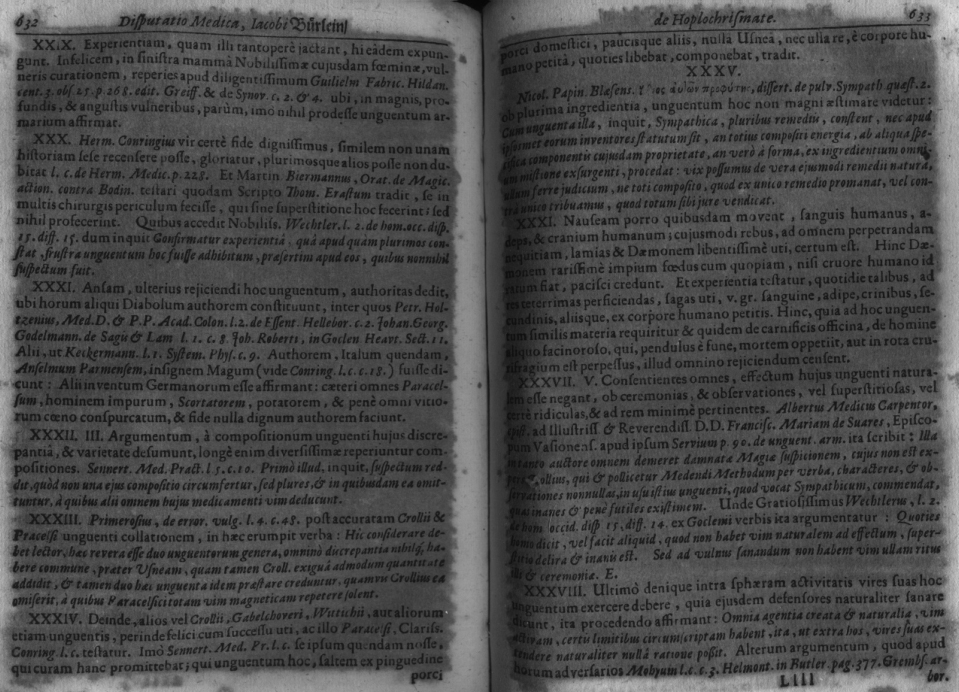 632 Disputatio Medica, Iacobi Bürlein/
XXIX. Experientiam, quam illi tantoperè jactant, hi eàdem expun-
gunt. Infelicem, in sinistra mammâ Nobilissimæ cujusdam fœminæ, vul-
neris curationem, reperies apud diligentissimum Guilielm Fabric. Hildan.
cent. 3. obs. 25. p. 268. edit. Greiff. & de Synov. c. 2. & 4. ubi, in magnis, pro-
fundis, & angustis vulneribus, parùm, imò nihil prodesse unguentum ar-
marium affirmat.
XXX. Herm. Conringius vir certè fide dignissimus, similem non unam
historiam sese recensere posse, gloriatur, plurimosque alios posse non du-
bitat l. c. de Herm. Medic. p. 228. Et Martin Biermannus, Orat. de Magic.
action. contra Bodin. testari quodam Scripto Thom. Erastum tradit, se in
multis chirurgis periculum fecisse, qui sine superstitione hoc fecerint; sed
nihil profecerint. Quibus accedit Nobiliss. Wechtler. l. 2. de hom. occ. disp.
15. diss. 15. dum inquit Confirmatur experientiâ: quâ apud quàm plurimos con-
stat, frustra unguentum hoc fuisse adhibitum, præsertim apud eos, quibus nonnihil
suspectum fuit.
XXXI. Ansam, ulterius rejiciendi hoc unguentum, authoritas dedit,
ubi horum aliqui Diabolum authorem constituunt, inter quos Petr. Hol-
tzenius, Med. D. & P. P. Acad. Colon. l. 2. de Essent. Hellebor. c. 2. Johan. Georg.
Godelmann. de Sagis & Lam l. 1. c. 8. Joh. Roberts, in Goclen Heart. Sect. 11.
Alii, ut Keckermann. l. 1. System. Phys. c. 9. Authorem, Italum quendam,
Anselmum Parmensem, insignem Magum (vide Conring. l. c. c. 18.) fuisse di-
cunt: Alii inventum Germanorum esse affirmant: cæteri omnes Paracel-
sum, hominem impurum, Scortatorem, potatorem, & penè omni vitio-
rum cœno conspurcatum, & fide nulla dignum authorem faciunt.
XXXII. III. Argumentum, à compositionum unguenti hujus discre-
pantiâ, & varietate desumunt, longè enim diversissimæ reperiuntur com-
positiones. Sennert. Med. Pract. l. 5. c. 10. Primò illud, inquit, suspectum red-
dit, quòd non una ejus compositio circumfertur, sed plures, & in quibusdam ea omit-
tuntur, à quibus alii omnem hujus medicamenti vim deducunt.
XXXIII. Primerosius, de error. vulg. l. 4. c. 48. post accuratam Crollii &
Pracelsi unguenti collationem, in hæc erumpit verba: Hic considerare de-
bet lector, hæc revera esse duo unguentorum genera, omninò discrepantia nihilq, ha-
bere commune, præter Usneam, quam tamen Croll. exiguâ admodum quantitate
addidit, & tamen duo hæc unguenta idem præstare creduntur, quamvis Crollius ea
omiserit, à quibus Paracelsici totam vim magneticam repetere solent.
XXXIV. Deinde, alios vel Crollii, Gabelchoveri, Wittichii, aut aliorum
etiam unguentis, perinde felici cum successu uti, ac illo Paracelsi, Clariss.
Conring. l. c. testatur. Imò Sennert. Med. Pr. l. c. se ipsum quendam nosse,
qui curam hanc promittebat; qui unguentum hoc, saltem ex pinguedine
porci
de Hoplochrismate. 633
porci domestici, paucisque aliis, nullâ Usneâ, nec ulla re, è corpore hu-
mano petitâ, quoties libebat, componebat, tradit.
XXXV.
Nicol. Papin. Blæsens. dissert. de pulv. Sympath. quæst. 2.
ob plurima ingredientia, unguentum hoc non magni æstimare videtur:
Cum unguenta illa, inquit, Sympathica, pluribus remediis, constent, nec apud
ipsosmet eorum inventores statutum sit, an totius compositi energia, ab aliqua spe-
cifica componentis cujusdam proprietate, an verò à forma, ex ingredientium omni-
um mistione exsurgenti, procedat: vix possumus de vera ejusmodi remedii natura,
ullum ferre judicium, ne toti composito, quod ex unico remedio promanat, vel con-
tra unico tribuamus, quod totum sibi jure vendicat.
XXXI. Nauseam porro quibusdam movent, sanguis humanus, a-
deps, & cranium humanum; cujusmodi rebus, ad omnem perpetrandam
nequitiam, lamias & Dæmonem libentissimè uti, certum est. Hinc Dæ-
monem rarissimè impium fœdus cum quopiam, nisi cruore humano id
ratum fiat, pacisci credunt. Et experientia testatur, quotidie talibus, ad
res teterrimas perficiendas, sagas uti, v. gr. sanguine, adipe, crinibus, se-
cundinis, aliisque, ex corpore humano petitis. Hinc, quia ad hoc unguen-
tum similis materia requiritur & quidem de carnificis officina, de homine
aliquo facinoroso, qui, pendulus è fune, mortem oppetiit, aut in rota cru-
rifragium est perpessus, illud omnino rejiciendum censent.
XXXVII. V. Consentientes omnes, effectum hujus unguenti natura-
lem esse negant, ob ceremonias, & observationes, vel superstitiosas, vel
certè ridiculas, & ad rem minimè pertinentes. Albertus Medicus Carpentor,
epist. ad Illustriss & Reverendiss. D. D. Francisc. Mariam de Suares, Episco-
pum Vasionens. apud ipsum Servium p. 90. de unguent. arm. ita scribit: Illa
in tanto auctore omnem demeret damnatæ Magiæ suspicionem, cujus non est ex-
pers Crollius, qui & pollicetur Medendi Methodum per verba, characteres, & ob-
servationes nonnullas, in usu istius unguenti, quod vocat Sympathicum, commendat,
quas inanes & penè futiles existimem. Unde Gratiosissimus Wechtlerus, l. 2.
de hom occid. disp 15. diss. 14. ex Goclenii verbis ita argumentatur: Quoties
homo dicit, vel facit aliquid, quod non habet vim naturalem ad effectum, super-
stitio delira & inanis est. Sed ad vulnus sanandum non habent vim ullam ritus
illi & ceremoniæ. E.
XXXVIII. Ultimò denique intra sphæram activitatis vires suas hoc
unguentum exercere debere, quia ejusdem defensores naturaliter sanare
dicunt, ita procedendo affirmant: Omnia agentia creata & naturalia, vim
certis limitibus circumscriptam habent, ita, ut extra hos, vires suas ex-
tendere naturaliter nullâ ratione possit. Alterum argumentum, quod apud
horum adversarios Mohyum l. c. c. 3. Helmont. in Butler. pag. 377. Grembs. ar-
Llll bor.